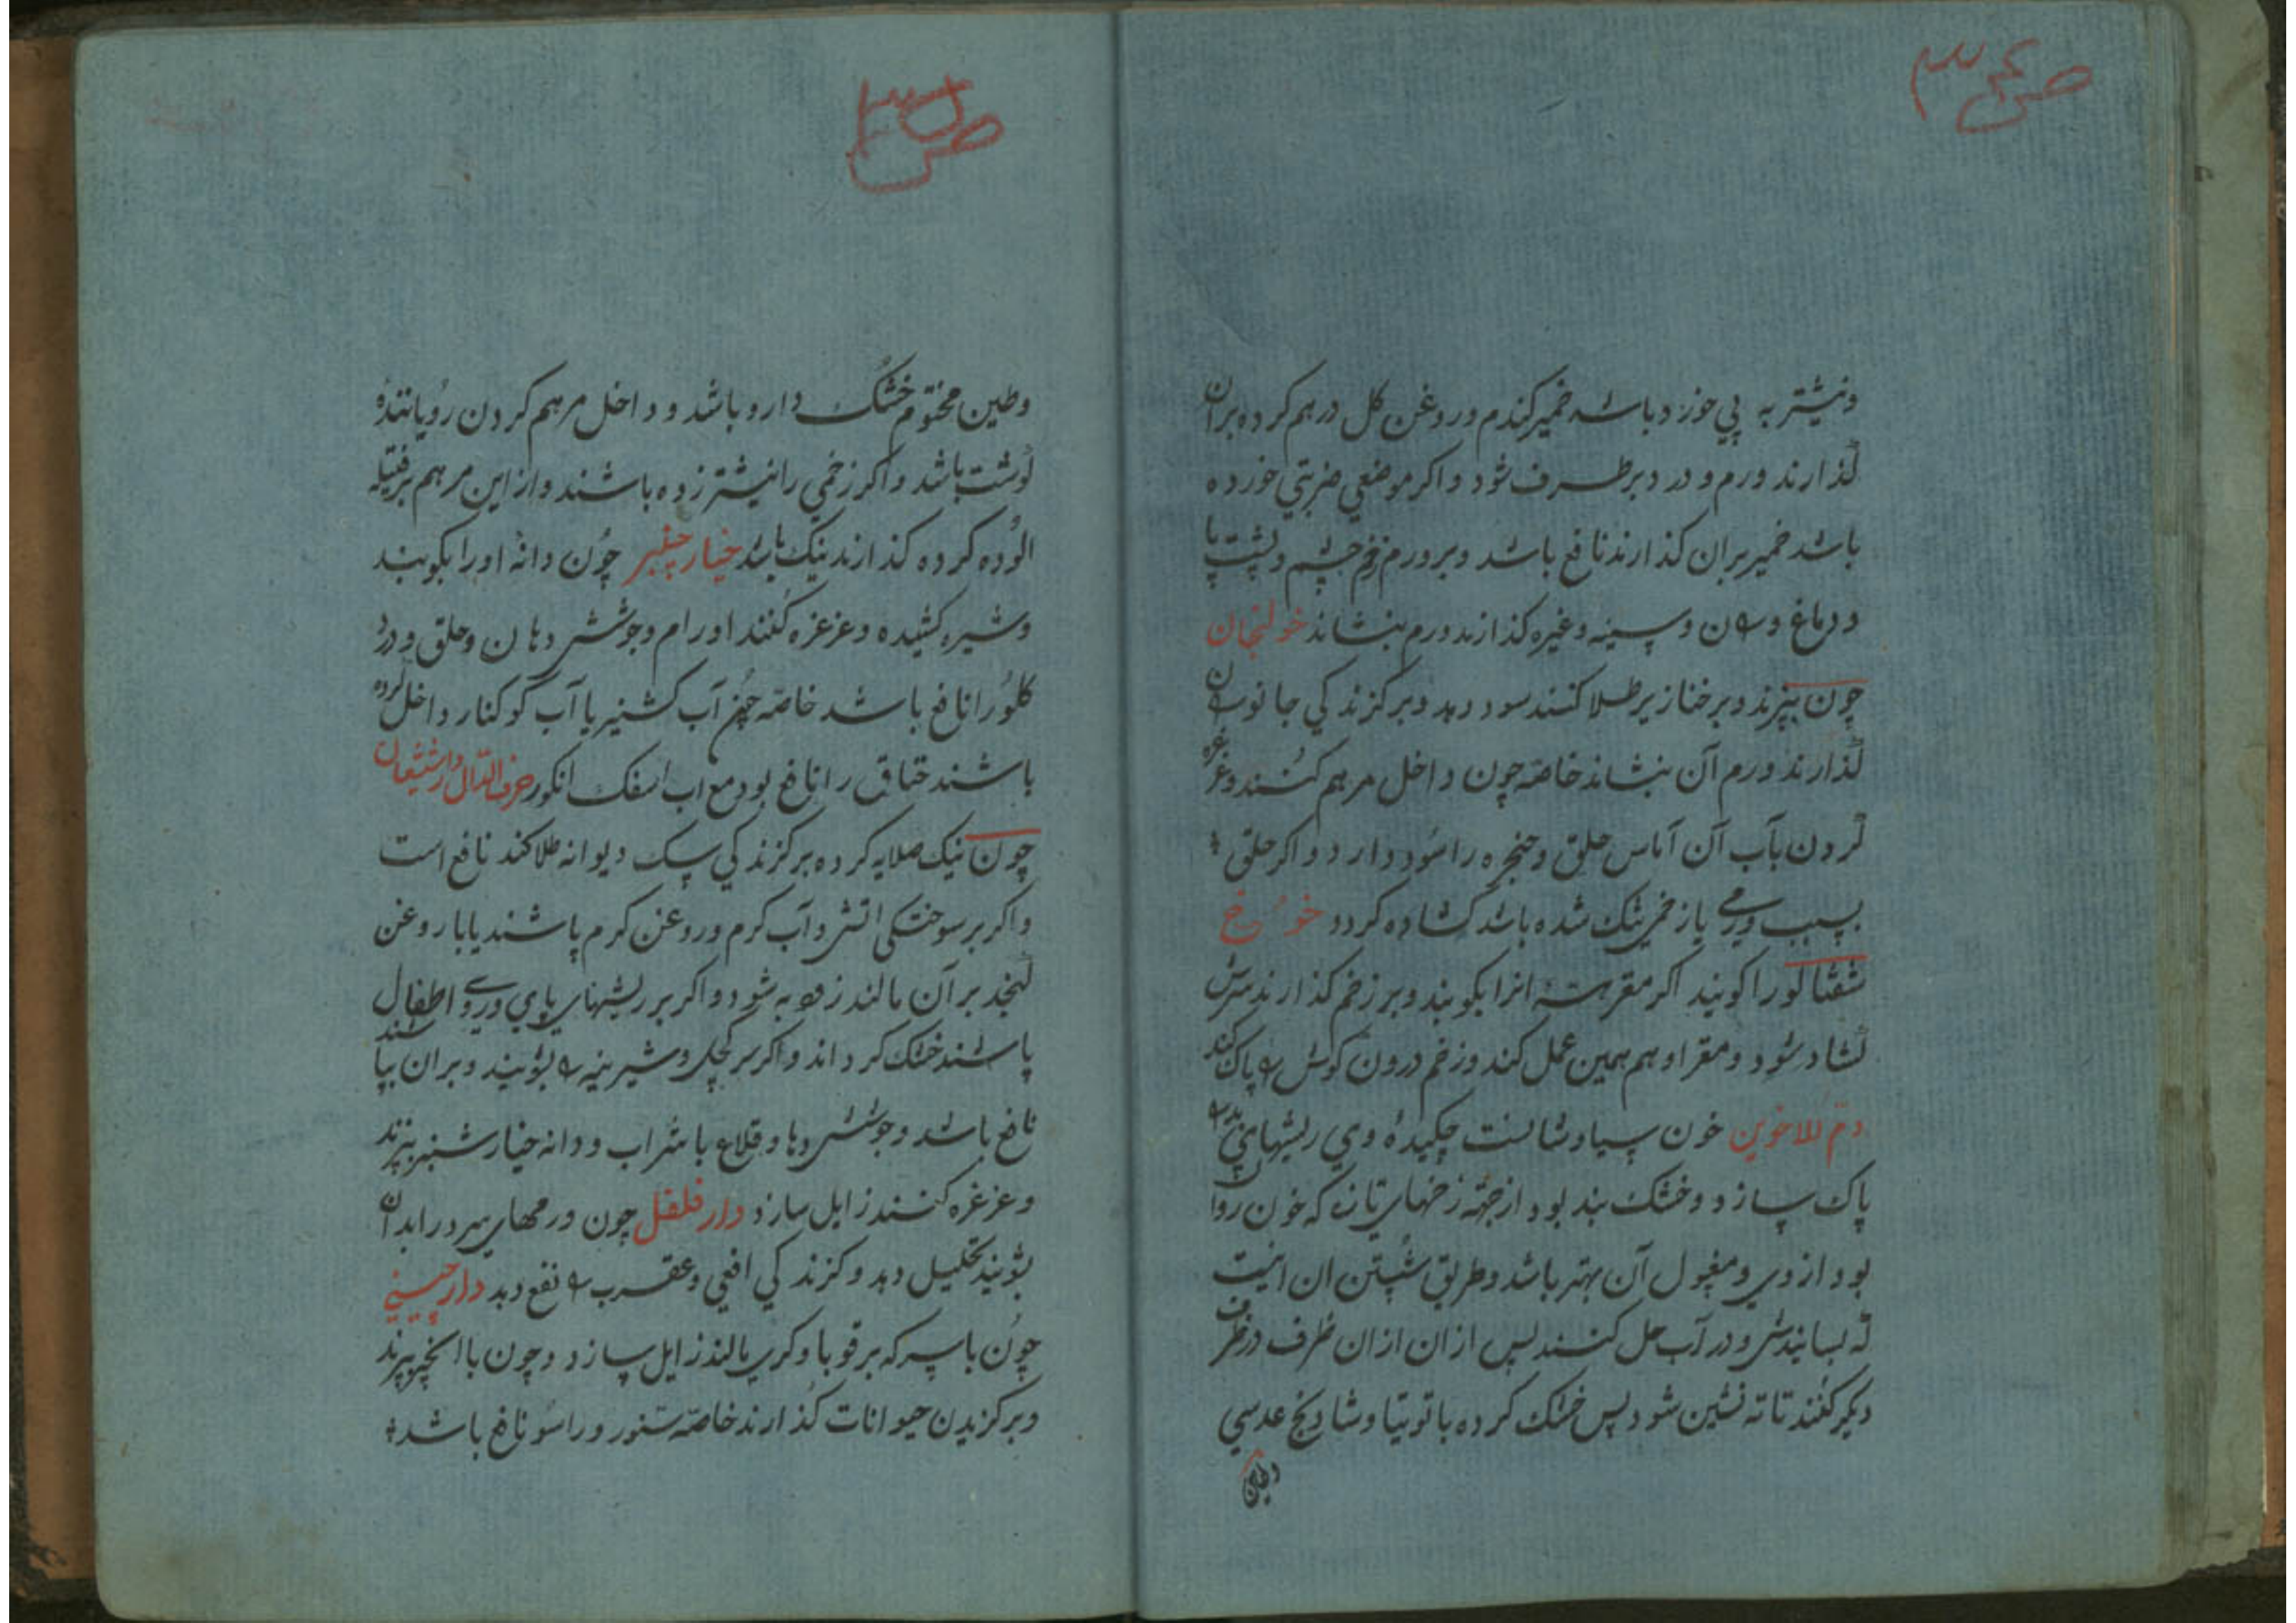 ص ۳۴
ونیشتر به پی خورد باشد خمیر کندم و روغن کل درهم کرده بران
کذارند ورم و درد برطرف شود و اکر موضعی ضربتی خورده
باشد خمیر بران کذارند نافع باشد و بر ورم زخم چشم و پشت پا
و دماغ و و سینه و غیره کذارند ورم بنشاند خولنجان
چون بپزند و بر خنازیر طلا کنند سود دهد و بر کزندکی جانوران
کذارند ورم آن بنشاند خاصه چون داخل مرهم کنند و غرغره
کردن بآب آن آماس حلق و حنجره را سود دارد و اکر حلق
بسبب ورمی یا زخمی تنک شده باشد کشاده کردد خوخ
شفتالو را کویند اکر مغز هسته انرا بکوبند و بر زخم کذارند سرش
کشاد شود و مغز او هم همین عمل کند و زخم درون کوش پاک کند
دم الاخوین خون سیاوشانست چکیده وی ریشهای
پاک سازد و خشک بند بود از جهة زخمهای تازه که خون روان
بود از وی و مغسول آن بهتر باشد و طریق شستن ان اینست
که بسایندش و در آب حل کنند پس ازان ازان ظرف در ظرف
دیکر کنند تا ته نشین شود پس خشک کرده با توتیا و شادنج عدسی
وطین
ص ۳۵
وطین مختوم خشک دارو باشد و داخل مرهم کردن رویاننده
کوشت باشد و اکر زخمی را نیشتر زده باشند و از این مرهم بر فتیله
الوده کرده کذارند نیک باشد خیار چنبر چون دانه اورا بکوبند
و شیره کشیده و غرغره کنند اورام و جوشش دهان و حلق و درد
کلو را نافع باشد خاصه چون آب کشنیز یا آب کوکنار داخل کرده
باشند خناق را نافع بود مع اب انکور حرف الدال دارشیشعان
چون نیک صلایه کرده بر کزندکی سک دیوانه طلا کند نافع است
واکر بر سوختکی اتش و آب کرم و روغن کرم پاشند یا با روغن
کنجد بر آن مالند زود به شود و اکر بر ریشهای پای و روی اطفال
پاشند خشک کرداند و اکر سر کچل و شیرینه بشویند و بران بپاشند
نافع باشد و جوشش دها و قلاع با شراب و دانه خیارشنبر بپزند
و غرغره کنند زایل سازد دارفلفل چون ورمهای سرد را بدان
بشویند تحلیل دهد و کزندکی افعی و عقرب نفع دهد دارچینی
چون با سرکه بر قوبا و کری مالند زایل سازد و چون با انجیر بپزند
و بر کزیدن حیوانات کذارند خاصه سنور و راسو نافع باشد